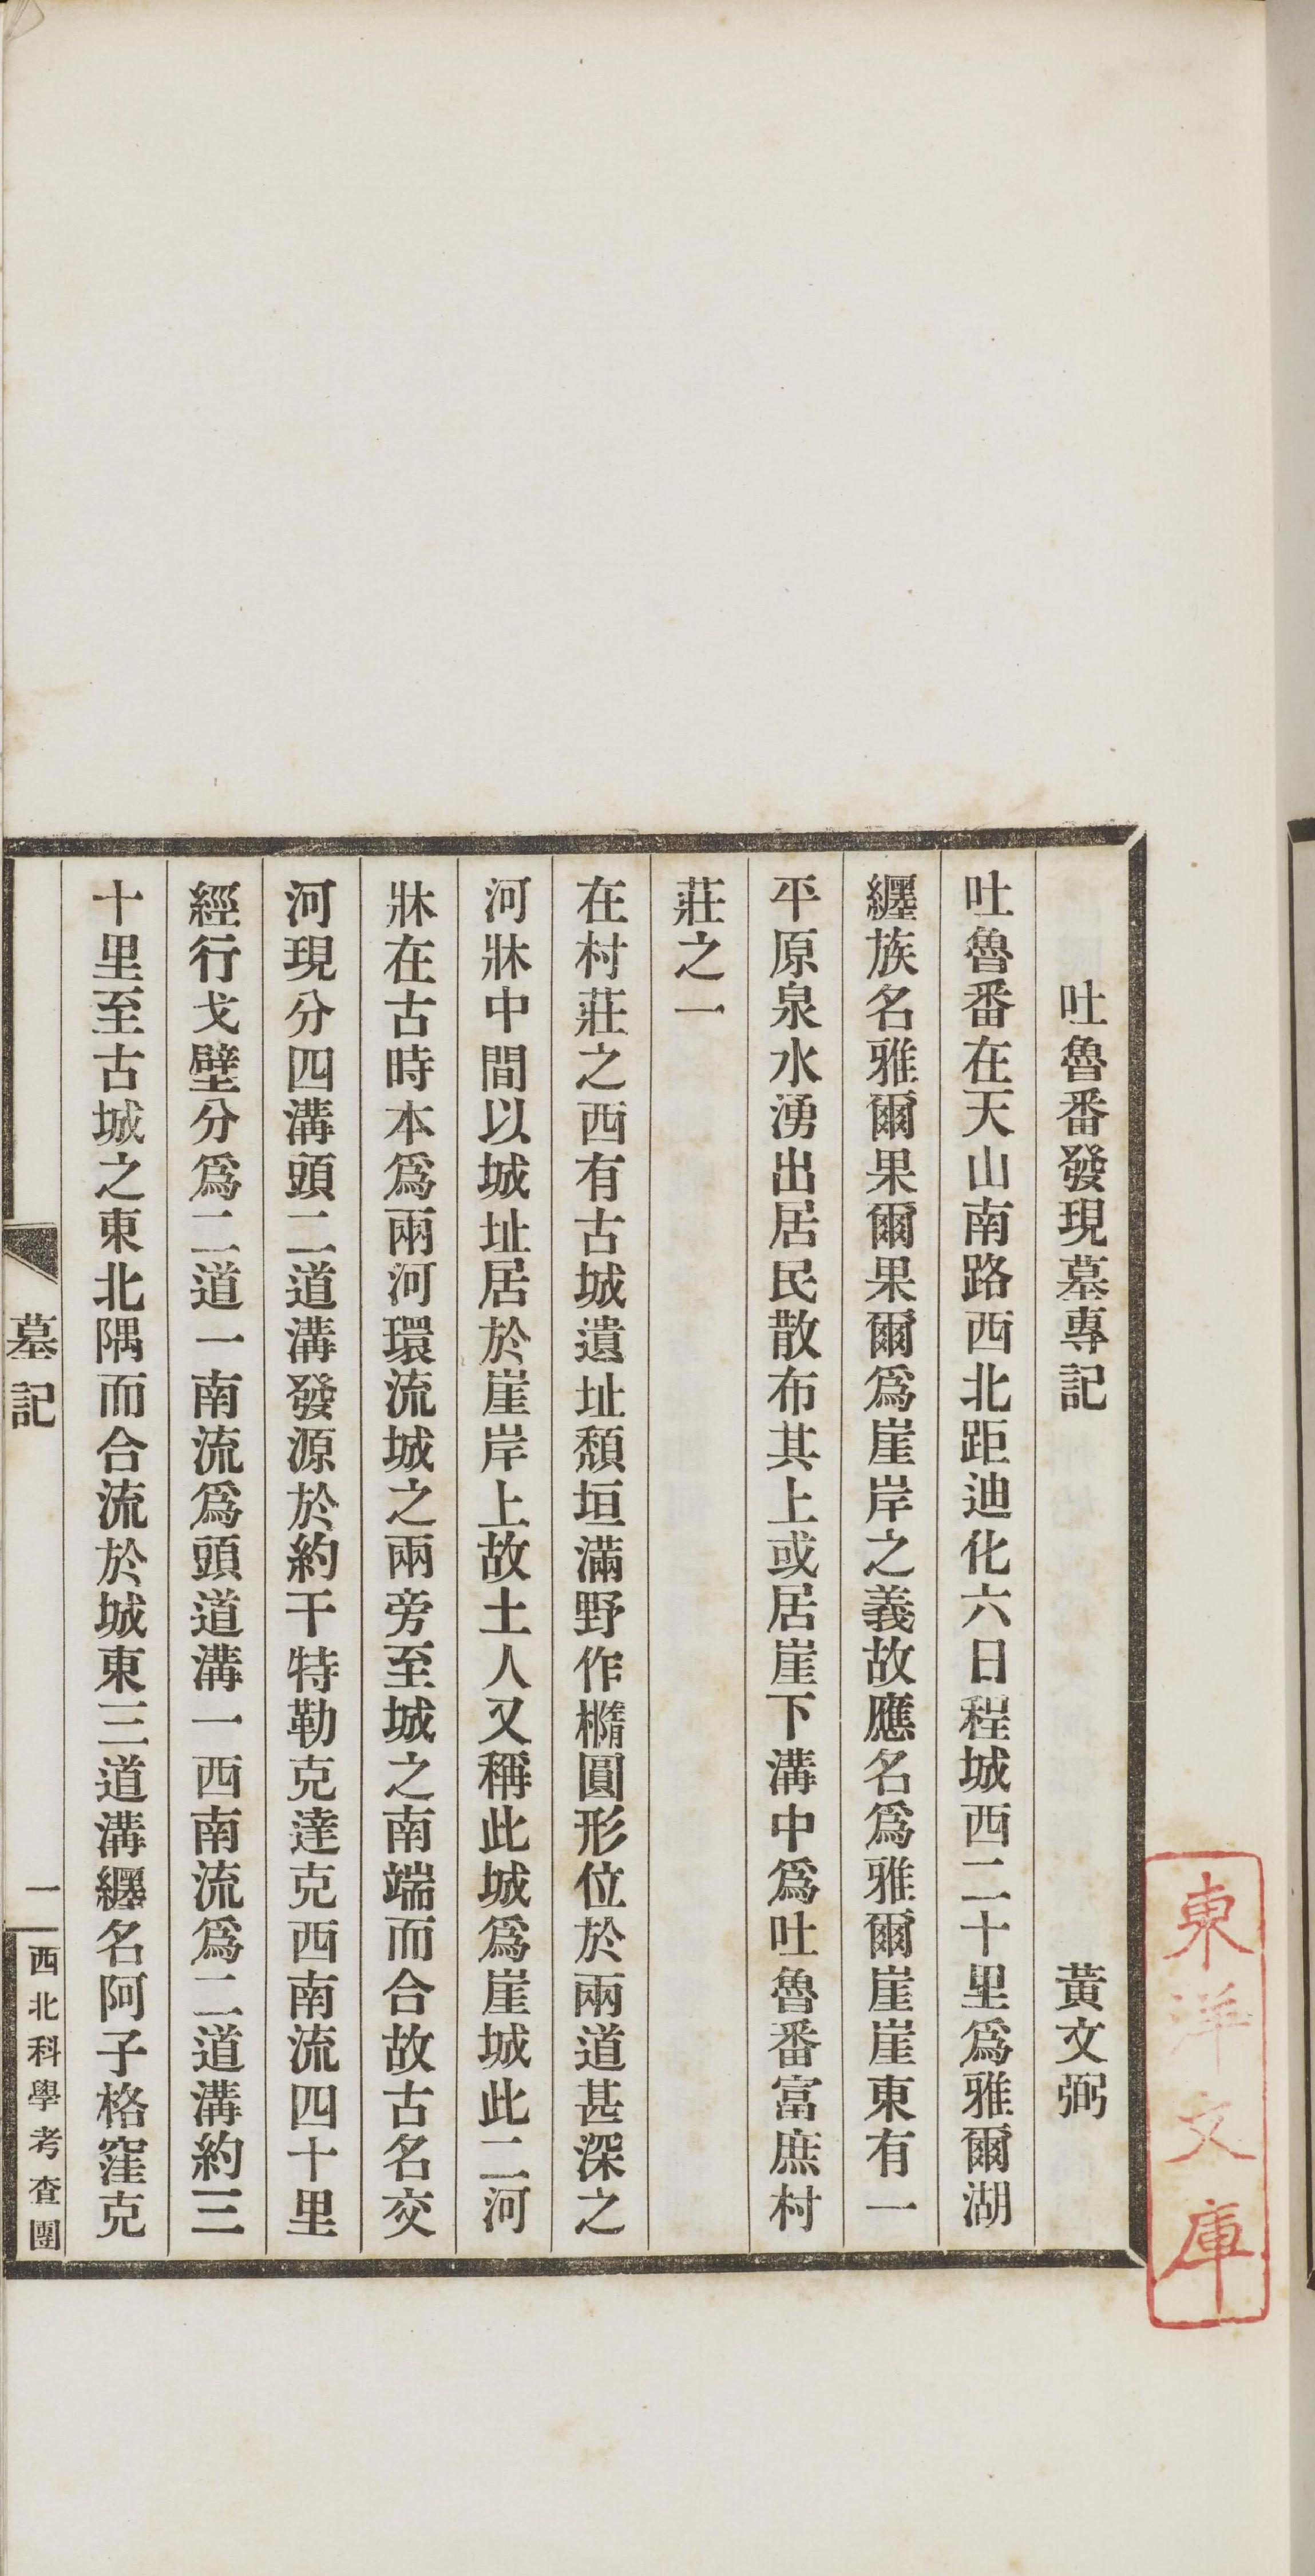 吐魯番發現墓專記
黃文弼
吐魯番在天山南路西北距迪化六日程城西二十里爲雅爾湖
纏族名雅爾果爾果爾爲崖岸之義故應名爲雅爾崖崖東有一
平原泉水湧出居民散布其上或居崖下溝中爲吐魯番富庶村
莊之一
在村莊之西有古城遺址頹垣滿野作橢圓形位於兩道甚深之
河牀中間以城址居於崖岸上故土人又稱此城爲崖城此二河
牀在古時本爲兩河環流城之兩旁至城之南端而合故古名交
河現分四溝頭二道溝發源於約干特勒克達克西南流四十里
經行戈壁分爲二道一南流爲頭道溝一西南流爲二道溝約三
十里至古城之東北隅而合流於城東三道溝纏名阿子格窪克
墓記
一
西北科學考查團
東洋文庫